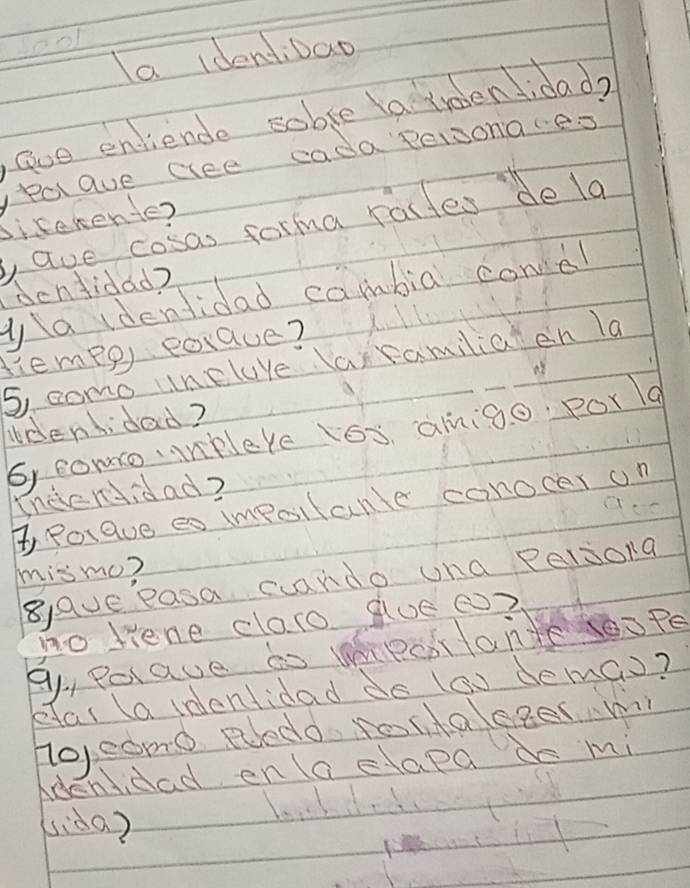 la identidad
1) Que entiende sobre la identidad?
2) porque cree cada persona es
diferente?
3) que cosas forma partes de la
identidad?
4) la identidad cambia con el
tiempo) porque?
5) como influye la familia en la
identidad?
6) como infleye los amigo por la
indentidad?
7) Porque es importante conocer un
mismo?
8) que pasa cuando una persona
no tiene claro que es?
9) porque es importante respe
etar la identidad de los demas?
10) como puedo fortalezer mi
identidad en la etapa de mi
vida?